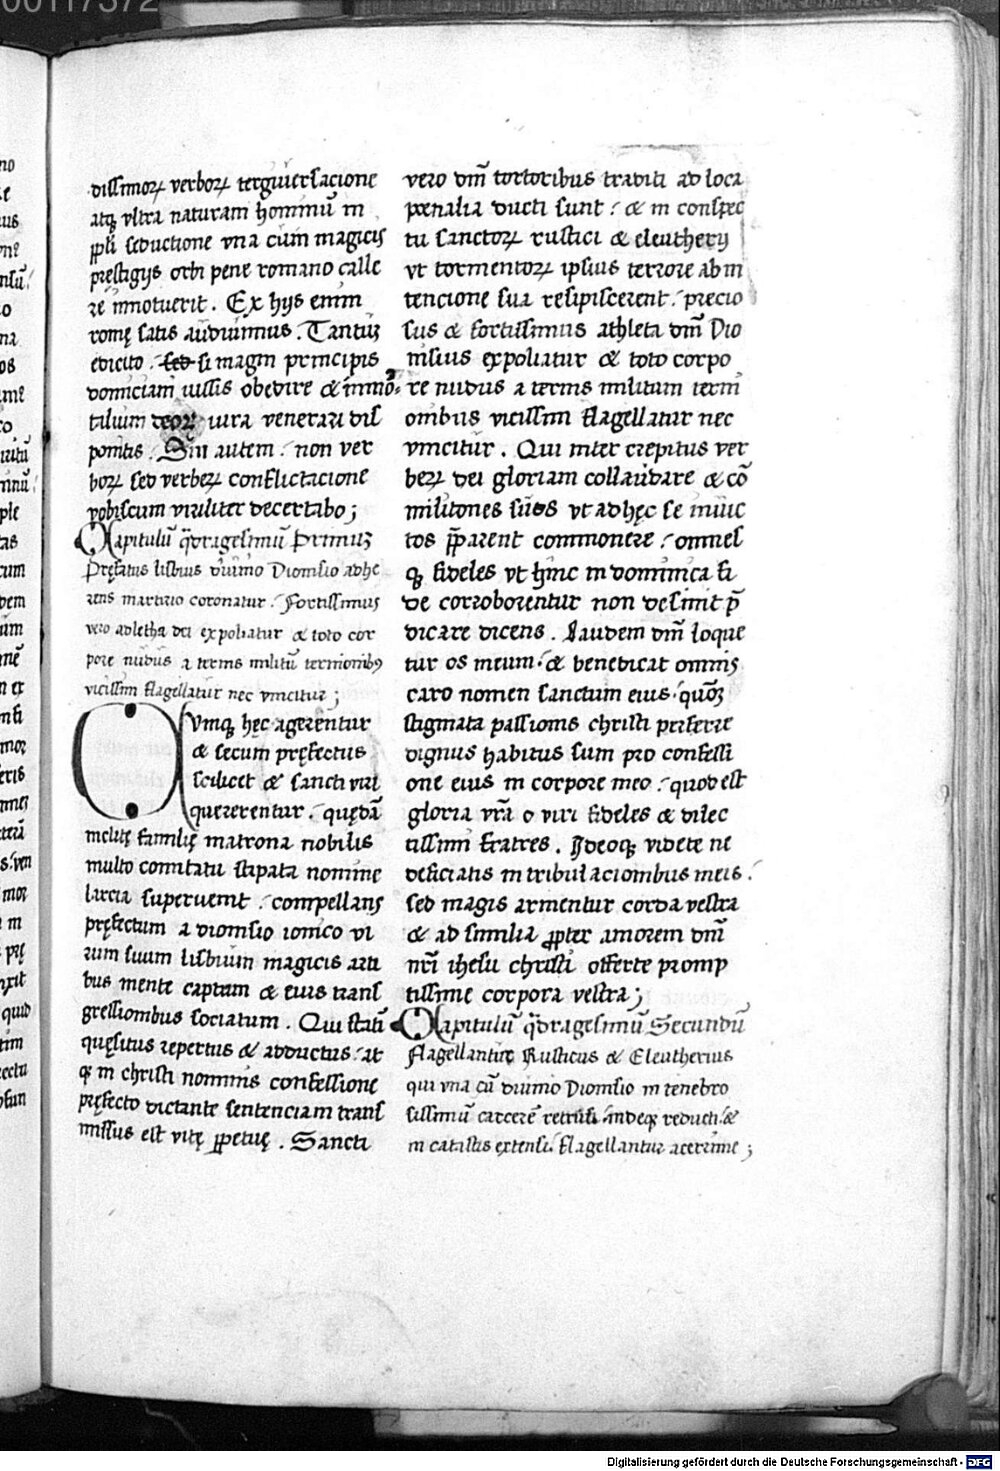 dissimoꝝ verboꝝ terguiversacione
atqꝫ vltra naturam hominū in
ppli seductione vna cum magicis
prestigijs orbi pene romano calle
re innotuerit. Ex hijs enim
romę satis audiuimus. Tantūz
edicito. sed si magni principis
domiciani iussis obedire & immo
talium deoꝝ iura venerari dis
ponitis. Sin autem: non ver
boꝝ sed verbeꝝ conflictacione
vobiscum viriliter decertabo;
Capitulū qͣdragesimū Primuꝫ
Pręfatus lisbius diuino Dionisio adhe
rens martirio coronatur. Fortissimus
vero adletha dei expoliatur & toto cor
pore nudus a ternis militū ternionibꝰ
vicissim flagellatur nec vincitur;
Cumqꝫ hęc agerentur
& secum pręfectus
scilicet & sancti viri
quererentur: quędā
melitę familię matrona nobilis
multo comitatu stipata nomine
larcia superuenit: compellans
pręfectum a dionisio ionico vi
rum suum lisbium magicis arti
bus mente captum & eius trans
gressionibus sociatum. Qui statī
quęsitus repertus & adductus: at
qꝫ in christi nominis confessione
pręfecto dictante sentenciam trans
missus est vitę ꝑpetuę. Sancti
vero dn̄i tortoribus traditi ad loca
penalia ducti sunt: & in conspec
tu sanctoꝝ rustici & eleutherij
vt tormentoꝝ ipsius terrore ab in
tencione sua resipiscerent: precio
sus & fortissimus athleta dn̄i Dio
nisius expoliatur & toto corpo
re nudus a ternis militum terni
onibus vicissim flagellatur nec
vincitur. Qui inter crepitus ver
beꝝ dei gloriam collaudare & cō
militones suos vt ad hęc se inuic
tos p̄parent commonere: omnes
qꝫ fideles vt hinc in dominica fi
de corroborentur non desinit p̄
dicare dicens. Laudem dn̄i loque
tur os meum: & benedicat omnis
caro nomen sanctum eius: quōꝫ
stigmata passionis christi preferre
dignus habitus sum pro confessi
one eius in corpore meo: quod est
gloria vr̄a o viri fideles & dilec
tissimi fratres. Ideoqꝫ videte ne
deficiatis in tribulacionibus meis:
sed magis armentur corda vestra
& ad similia ꝓpter amorem dn̄i
nr̄i ihesu christi offerte promp
tissime corpora vestra;
Capitulū qͣdragesimū Secundū
Flagellantur Rusticus & Eleutherius
qui vna cū diuino Dionisio in tenebro
sissimū carcerē retrusi: indeqꝫ reducti: &
in catastis extensi: flagellantur acerrime;
Digitalisierung gefördert durch die Deutsche Forschungsgemeinschaft - DFG